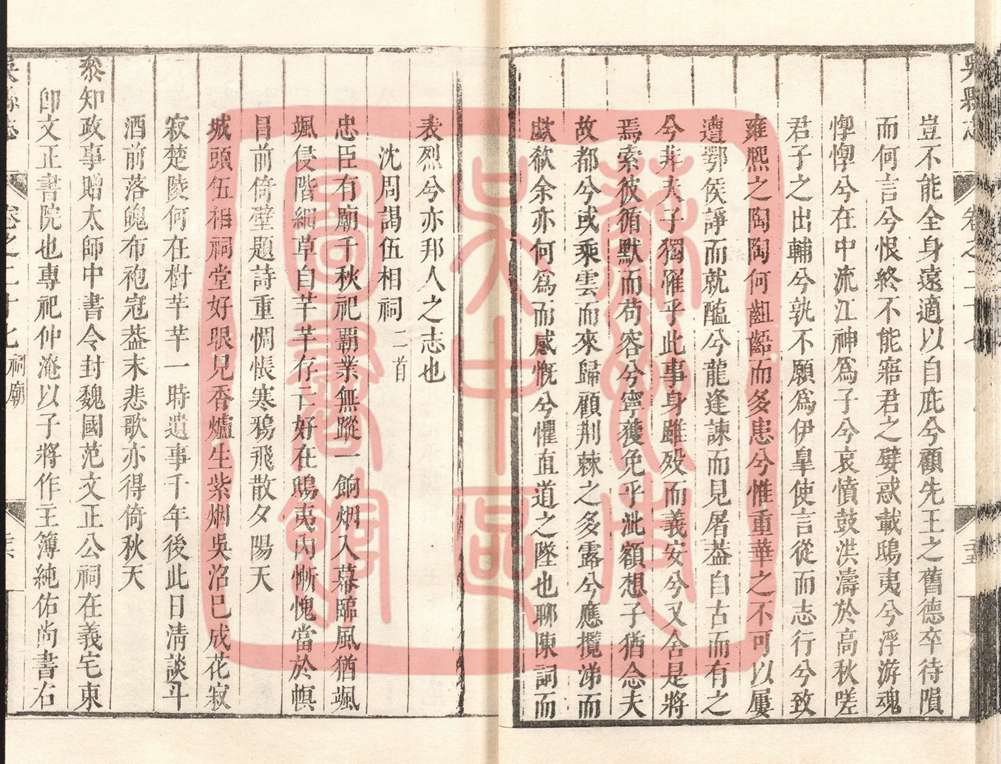 吳縣志 卷之二十七 三五
豈不能全身遠適以自庇兮顧先王之舊德卒待隕
而何言兮恨終不能寤君之嬖惑戴鴟夷兮浮游魂
悍悍兮在中流江神為子兮哀憤鼓洪濤於高秋嗟
君子之出輔兮孰不願為伊臯使言從而志行兮致
雍熙之陶陶何齟齬而多患兮惟重華之不可以屢
遭鄂侯諍而就醢兮龍逢諫而見屠葢自古而有之
兮非夫子獨罹乎此事身雖殁而義安兮又舍是將
焉索彼循默而苟容兮寧獲免乎泚額想子猶念夫
故都兮或乘雲而來歸顧荆棘之多露兮應攬涕而
歔欷余亦何為而感慨兮懼直道之墜也聊陳詞而
表烈兮亦邦人之志也
沈周謁伍相祠二首
忠臣有廟千秋祀覇業無蹤一餉烟入幕臨風猶颯
颯侵階細草自芊芊存亡好在鴟夷内慚愧當於幎
冒前倚壁題詩重惆悵寒鴉飛散夕陽天
城頭伍相祠堂好眼見香爐生紫烟吳沼巳成花寂
寂楚陵何在樹芊芊一時遺事千年後此日清談斗
酒前落魄布袍宼葢末悲歌亦得倚秋天
叅知政事贈太師中書令封魏國范文正公祠在義宅東
卽文正書院也專祀仲淹以子將作主簿純佑尚書右
吳縣志 卷之二十七 祠廟 三六
蘇州大中區圖書館